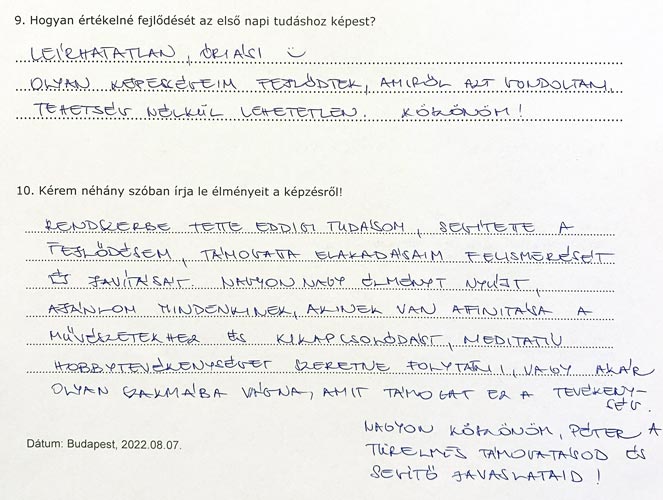 9. Hogyan értékelné fejlődését az első napi tudáshoz képest?
LEÍRHATATLAN, ÓRIÁSI
OLYAN KÉPESSÉGEIM FEJLŐDTEK, AMIRŐL AZT GONDOLTAM,
TEHETSÉG NÉLKÜL LEHETETLEN. KÖSZÖNÖM!
10. Kérem néhány szóban írja le élményeit a képzésről!
RENDSZERBE TETTE EDDIGI TUDÁSOM, SEGÍTETE A
FEJLŐDÉSEM, TÁMOGATA ELAKADÁSAIM FELISMERÉSÉT
ÉS JAVÍTÁSÁT. NAGYON NAGY ÉLMÉNYT NYÚJT,
AJÁNLOM MINDENKINEK, AKINEK VAN AFINITÁSA A
MŰVÉSZETEKHEZ ÉS KIKAPCSOLÓDÁST, MEDITATÍV
HOBBYTEVÉKENYSÉGET SZERETNE FOLYTATNI, VAGY AKÁR
OLYAN SZAKMÁBA VÁGNA, AMIT TÁMOGAT EZ A TEVÉKENY-
SÉG.
Dátum: Budapest, 2022.08.07.
NAGYON KÖSZÖNÖM, PÉTER A
TÜRELMES TÁMOGATÁSOD ÉS
SEGÍTŐ JAVASLATAID!